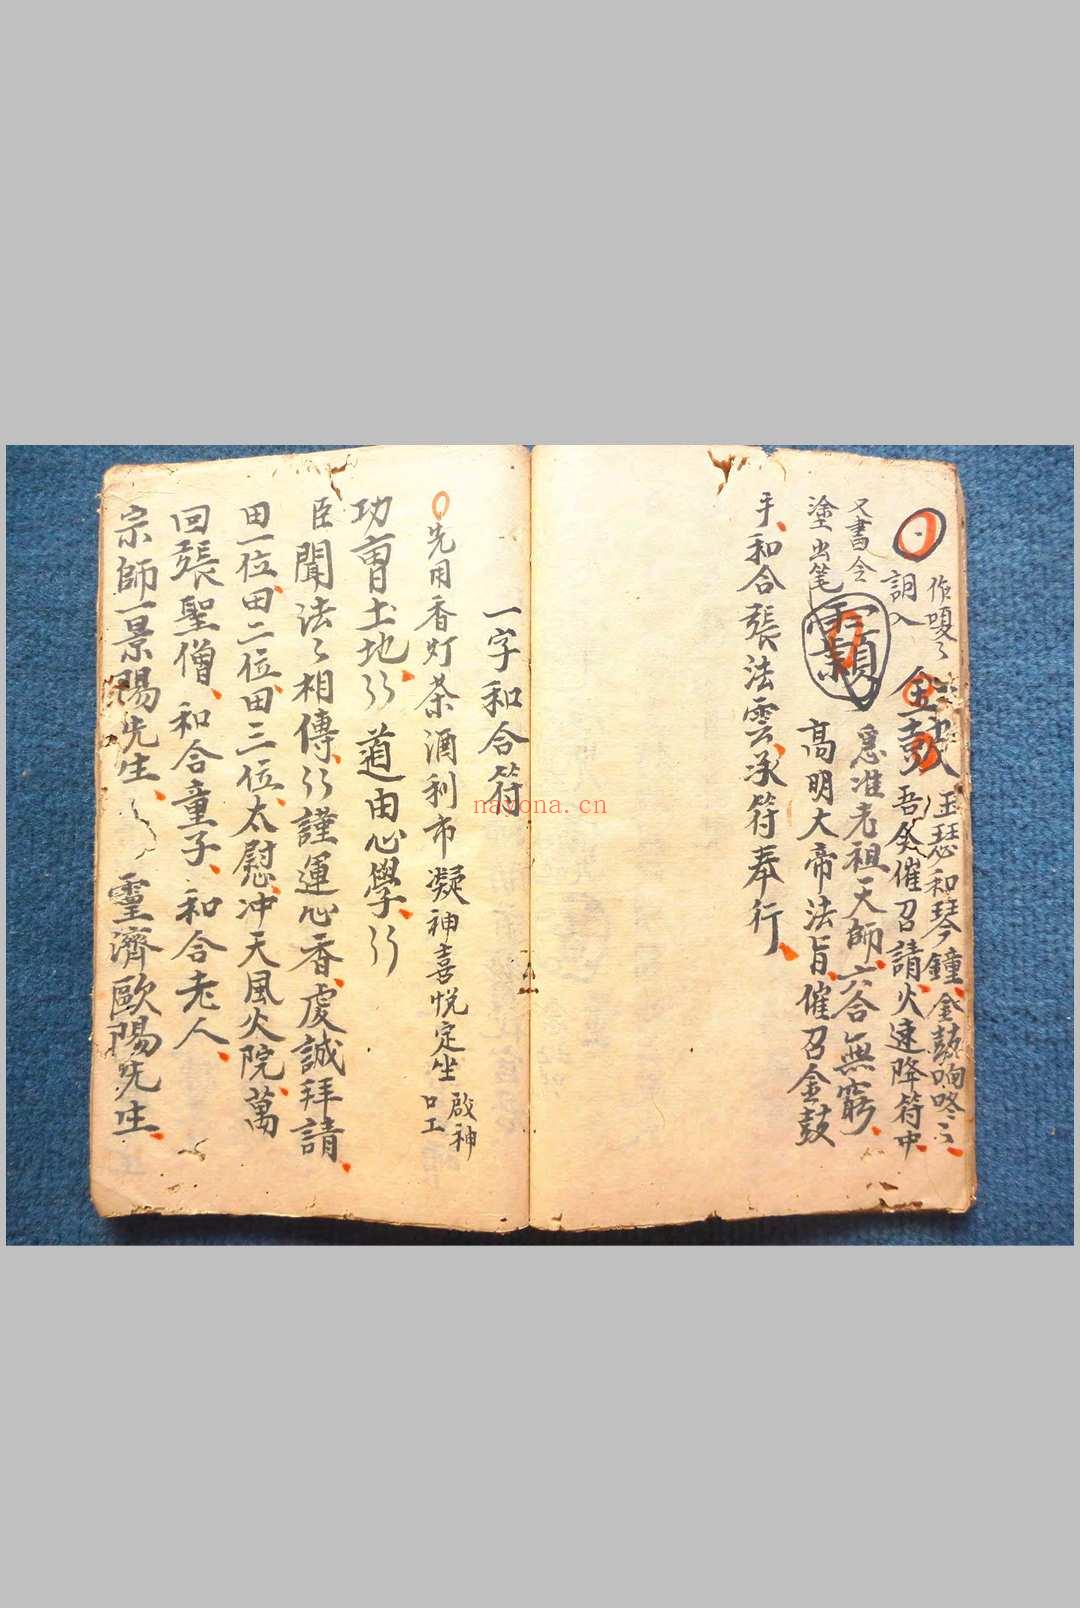 作嗄々
玉瑟和琴鐘金鼓响咚々
調入
金鼓
吾奂催召請火速降符中
又書令
急准老祖天師六合無窮
塗出笔
高明大帝法旨催召金鼓
手和合張法雲承符奉行
一字和合符
先用香灯茶酒利市凝神喜悦定坐
啟神
口工
功曹土地 道由心學
臣聞法々相傳 謹運心香虔誠拜請
田一位田二位田三位太慰冲天風火院萬
回張聖僧和合童子和合老人
宗師一景陽先生 靈濟歐陽先生
nayona.cn